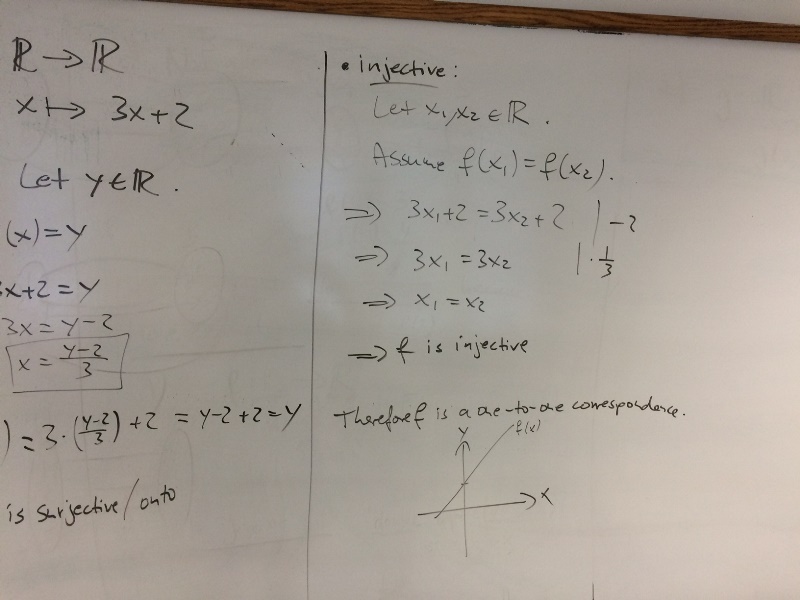 ℝ → ℝ
x ↦ 3x+2
Let y∈ℝ.
(x)=y
3x+2=y
3x=y-2
x = (y-2)/3
) = 3·((y-2)/3)+2 = y-2+2=y
is surjective/onto
• injective:
Let x₁,x₂∈ℝ.
Assume f(x₁)=f(x₂).
⇒ 3x₁+2=3x₂+2 | -2
⇒ 3x₁=3x₂ | · 1/3
⇒ x₁=x₂
⇒ f is injective
Therefore f is a one-to-one correspondence.
y
f(x)
x